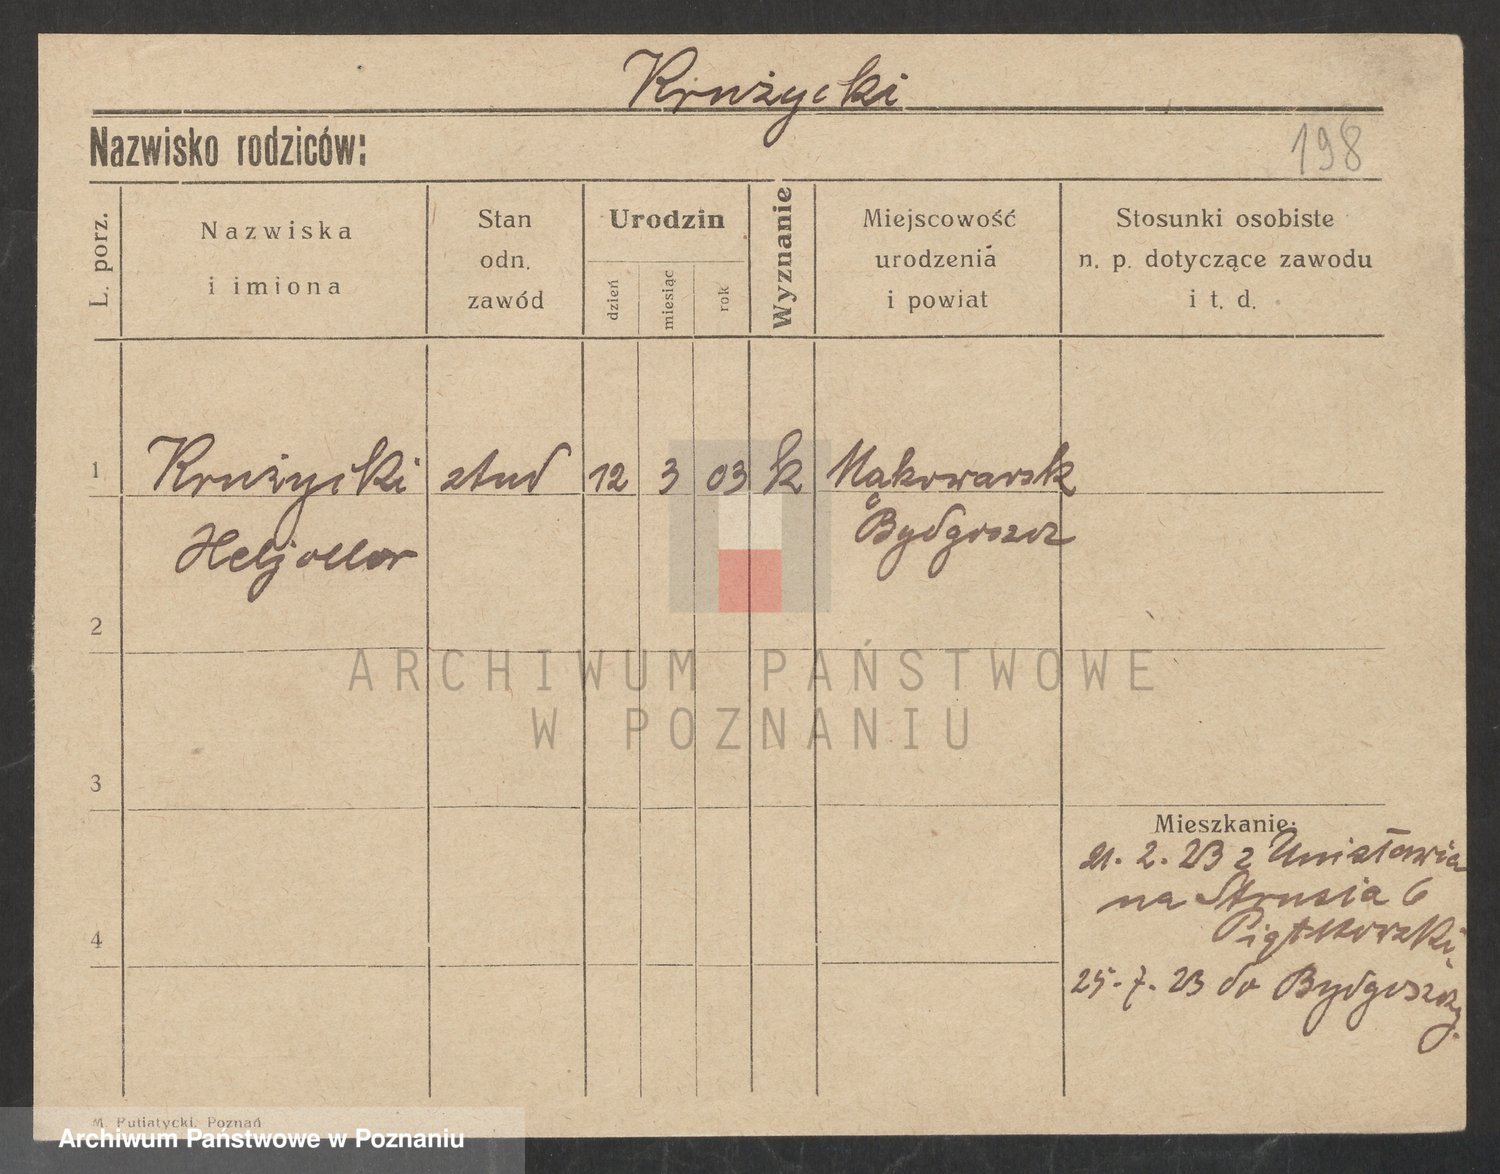 Krużycki
Nazwisko rodziców:
198
L. porz.
Nazwiska
i imiona
Stan
odn.
zawód
Urodzin
dzień
miesiąc
rok
Wyznanie
Miejscowość
urodzenia
i powiat
Stosunki osobiste
n. p. dotyczące zawodu
i t. d.
1
Krużycki
stud
12
3
03
k
Makowarsk
Bydgoszcz
Heljodor
2
ARCHIWUM PAŃSTWOWE
W POZNANIU
3
Mieszkanie:
21. 2. 23 z Unisławia
na Strusia 6
4
25. 7. 23 do Bydgoszczy.
M. Putiatycki, Poznań
Archiwum Państwowe w Poznaniu